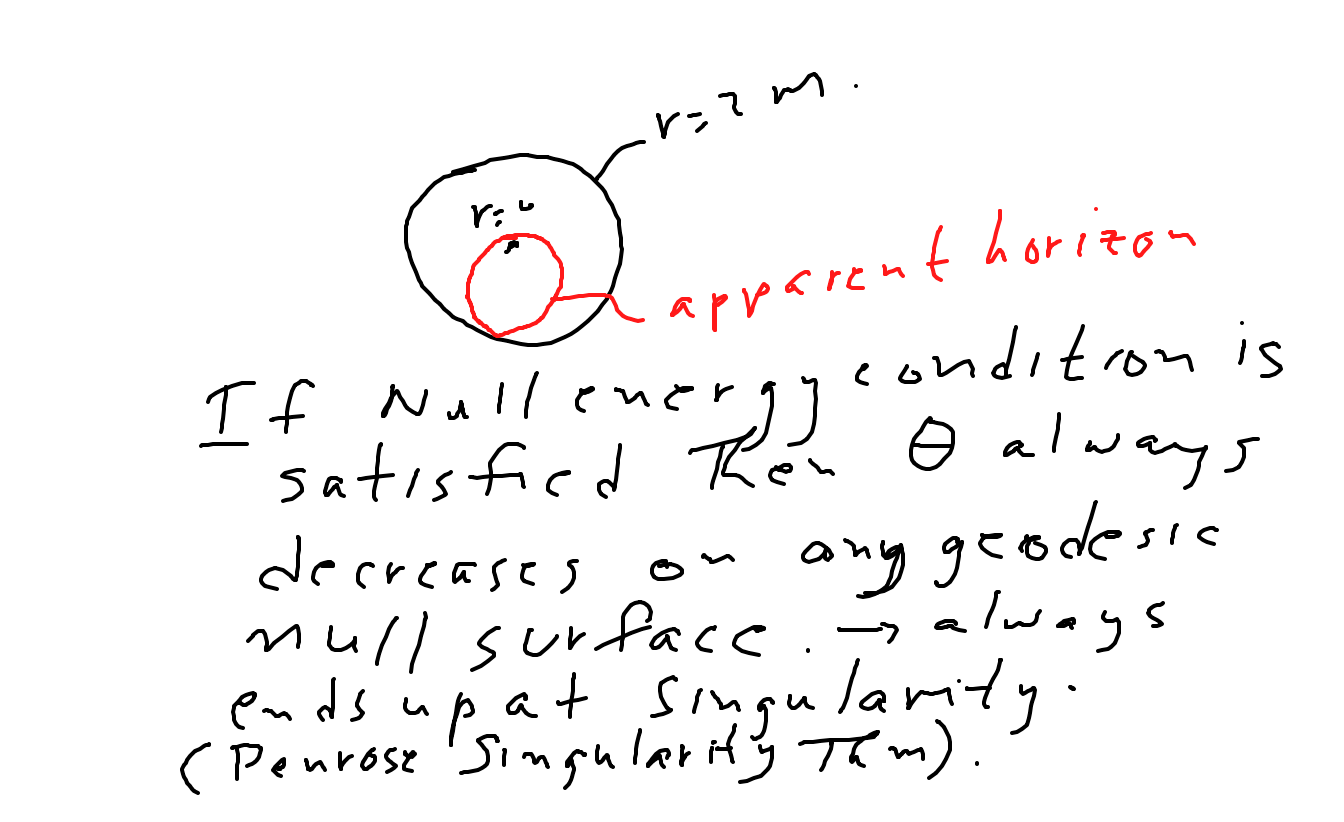 r=2m.
r=0
apparent horizon
If Null energy condition is
satisfied Then θ always
decreases on any geodesic
null surface. → always
ends up at singularity.
(Penrose Singularity Thm).